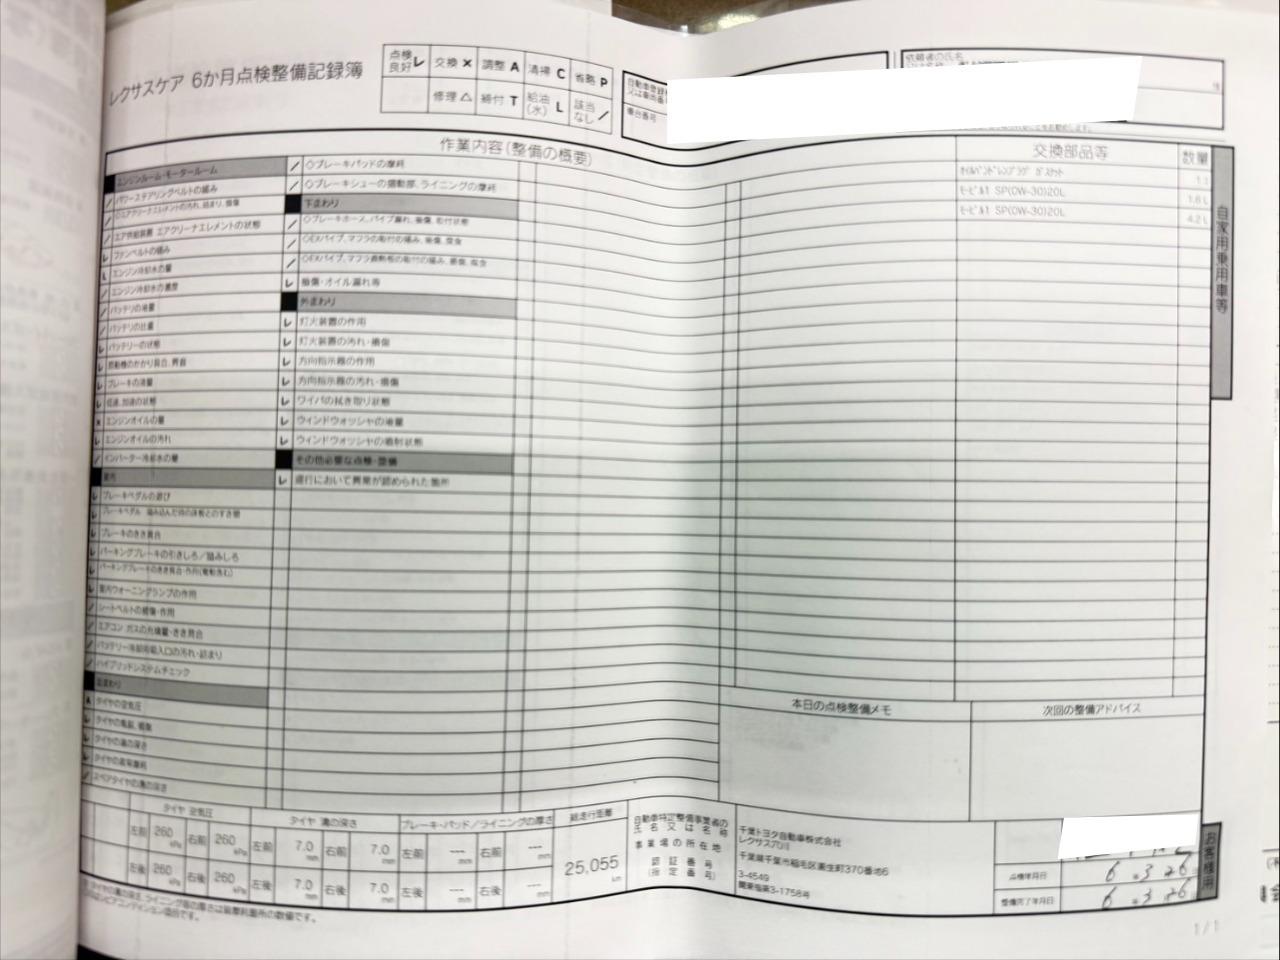 レクサスケア 6か月点検整備記録簿
点検良好 レ 交換 × 調整 A 清掃 C 省略 P
修理 △ 締付 T 給油(水) L 該当なし /
車台番号
依頼者の氏名
作業内容(整備の概要)
交換部品等 数量
エンジンルーム・モータールーム
パワーステアリングベルトの緩み
◇エアクリーナエレメントの汚れ、詰まり、損傷
エア供給装置 エアクリーナエレメントの状態
ファンベルトの緩み
エンジン冷却水の量
エンジン冷却水の濃度
バッテリの液量
バッテリの比重
バッテリーの状態
原動機のかかり具合、異音
ブレーキの液量
低速、加速の状態
エンジンオイルの量
エンジンオイルの汚れ
インバーター冷却水の量
室内
ブレーキペダルの遊び
ブレーキペダル 踏み込んだ時の床板とのすき間
ブレーキのきき具合
パーキングブレーキの引きしろ/踏みしろ
パーキングブレーキのきき具合・作用(電動含む)
室内ウォーニングランプの作用
シートベルトの損傷・作用
エアコン ガスの充填量・きき具合
バッテリー冷却用吸入口の汚れ・詰まり
ハイブリッドシステムチェック
足まわり
タイヤの空気圧
タイヤの亀裂、損傷
タイヤの溝の深さ
タイヤの異常摩耗
スペアタイヤの溝の深さ
◇ブレーキパッドの摩耗
◇ブレーキシューの摺動部、ライニングの摩耗
下まわり
◇ブレーキホース、パイプ漏れ、損傷、取付状態
◇EXパイプ、マフラの取付の緩み、損傷、腐食
◇EXパイプ、マフラ遮熱板の取付の緩み、損傷、腐食
損傷・オイル漏れ等
外まわり
灯火装置の作用
灯火装置の汚れ・損傷
方向指示器の作用
方向指示器の汚れ・損傷
ワイパの拭き取り状態
ウインドウォッシャの液量
ウィンドウォッシャの噴射状態
その他必要な点検・整備
運行において異常が認められた箇所
オイルパンドレンプラグ ガスケット
モービル1 SP(0W-30)20L 1.6 L
モービル1 SP(0W-30)20L 4.2 L
自家用乗用車等
本日の点検整備メモ
次回の整備アドバイス
タイヤ 空気圧
左前 260 kPa 右前 260 kPa
左後 260 kPa 右後 260 kPa
タイヤ 溝の深さ
左前 7.0 mm 右前 7.0 mm
左後 7.0 mm 右後 7.0 mm
ブレーキ・パッド/ライニングの厚さ
左前 --- mm 右前 --- mm
左後 --- mm 右後 --- mm
総走行距離
25,055 km
自動車特定整備事業者の氏名又は名称
事業場の所在地
認証番号
(指定番号)
千葉トヨタ自動車株式会社
レクサス穴川
千葉県千葉市稲毛区黒生町370番地6
3-4549
関東指第3-1758号
点検年月日 6.3.26
整備完了年月日 6.3.26
お客様用
1/1